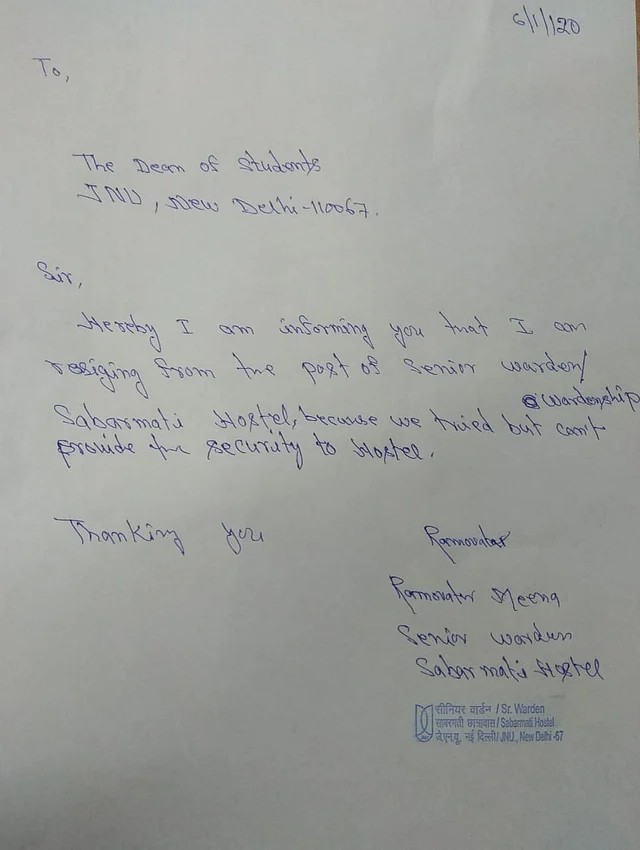 6/1/120
To,
The Dean of Students
JNU, New Delhi-110067.
Sir,
Hereby I am informing you that I am
resiging from the post of Senior warden/
wardenship
Sabarmati Hostel, because we tried but can't
provide the security to Hostel.
Thanking you
Ramovatar
Ramovatar Meena
Senior warden
Sabarmati Hostel
सीनियर वार्डन / Sr. Warden
साबरमती छात्रावास / Sabarmati Hostel
जे.एन.यू. नई दिल्ली/ JNU., New Delhi-67